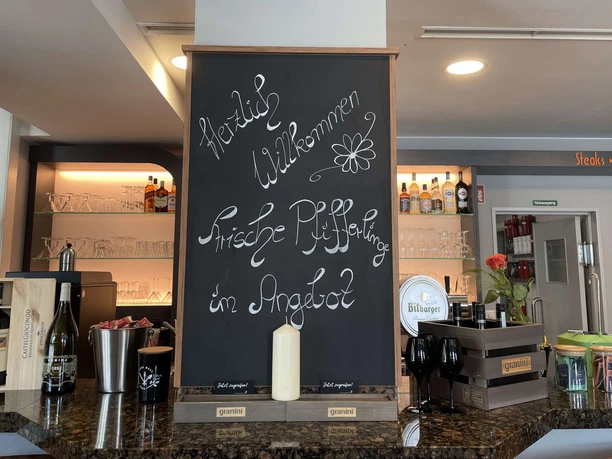 Herzlich
Willkommen
Frische Pfifferlinge
im Angebot
Steaks
Bitburger
granini
granini
granini